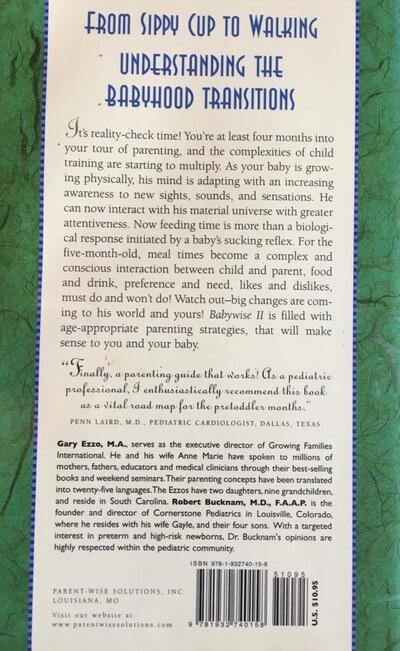 From Sippy Cup to Walking
Understanding the
Babyhood Transitions
It's reality-check time! You're at least four months into
your tour of parenting, and the complexities of child
training are starting to multiply. As your baby is grow-
ing physically, his mind is adapting with an increasing
awareness to new sights, sounds, and sensations. He
can now interact with his material universe with greater
attentiveness. Now feeding time is more than a biologi-
cal response initiated by a baby's sucking reflex. For the
five-month-old, meal times become a complex and
conscious interaction between child and parent, food
and drink, preference and need, likes and dislikes,
must do and won't do! Watch out–big changes are com-
ing to his world and yours! Babywise II is filled with
age-appropriate parenting strategies, that will make
sense to you and your baby.
"Finally, a parenting guide that works! As a pediatric
professional, I enthusiastically recommend this book
as a vital road map for the pretoddler months."
PENN LAIRD, M.D., PEDIATRIC CARDIOLOGIST, DALLAS, TEXAS
Gary Ezzo, M.A., serves as the executive director of Growing Families
International. He and his wife Anne Marie have spoken to millions of
mothers, fathers, educators and medical clinicians through their best-selling
books and weekend seminars. Their parenting concepts have been translated
into twenty-five languages. The Ezzos have two daughters, nine grandchildren,
and reside in South Carolina. Robert Bucknam, M.D., F.A.A.P. is the
founder and director of Cornerstone Pediatrics in Louisville, Colorado,
where he resides with his wife Gayle, and their four sons. With a targeted
interest in preterm and high-risk newborns, Dr. Bucknam's opinions are
highly respected within the pediatric community.
ISBN 978-1-932740-15-8
51095
PARENT-WISE SOLUTIONS, INC.
LOUISIANA, MO
Visit our website at
www.parentwisesolutions.com
9 781932 740158
U.S. $10.95